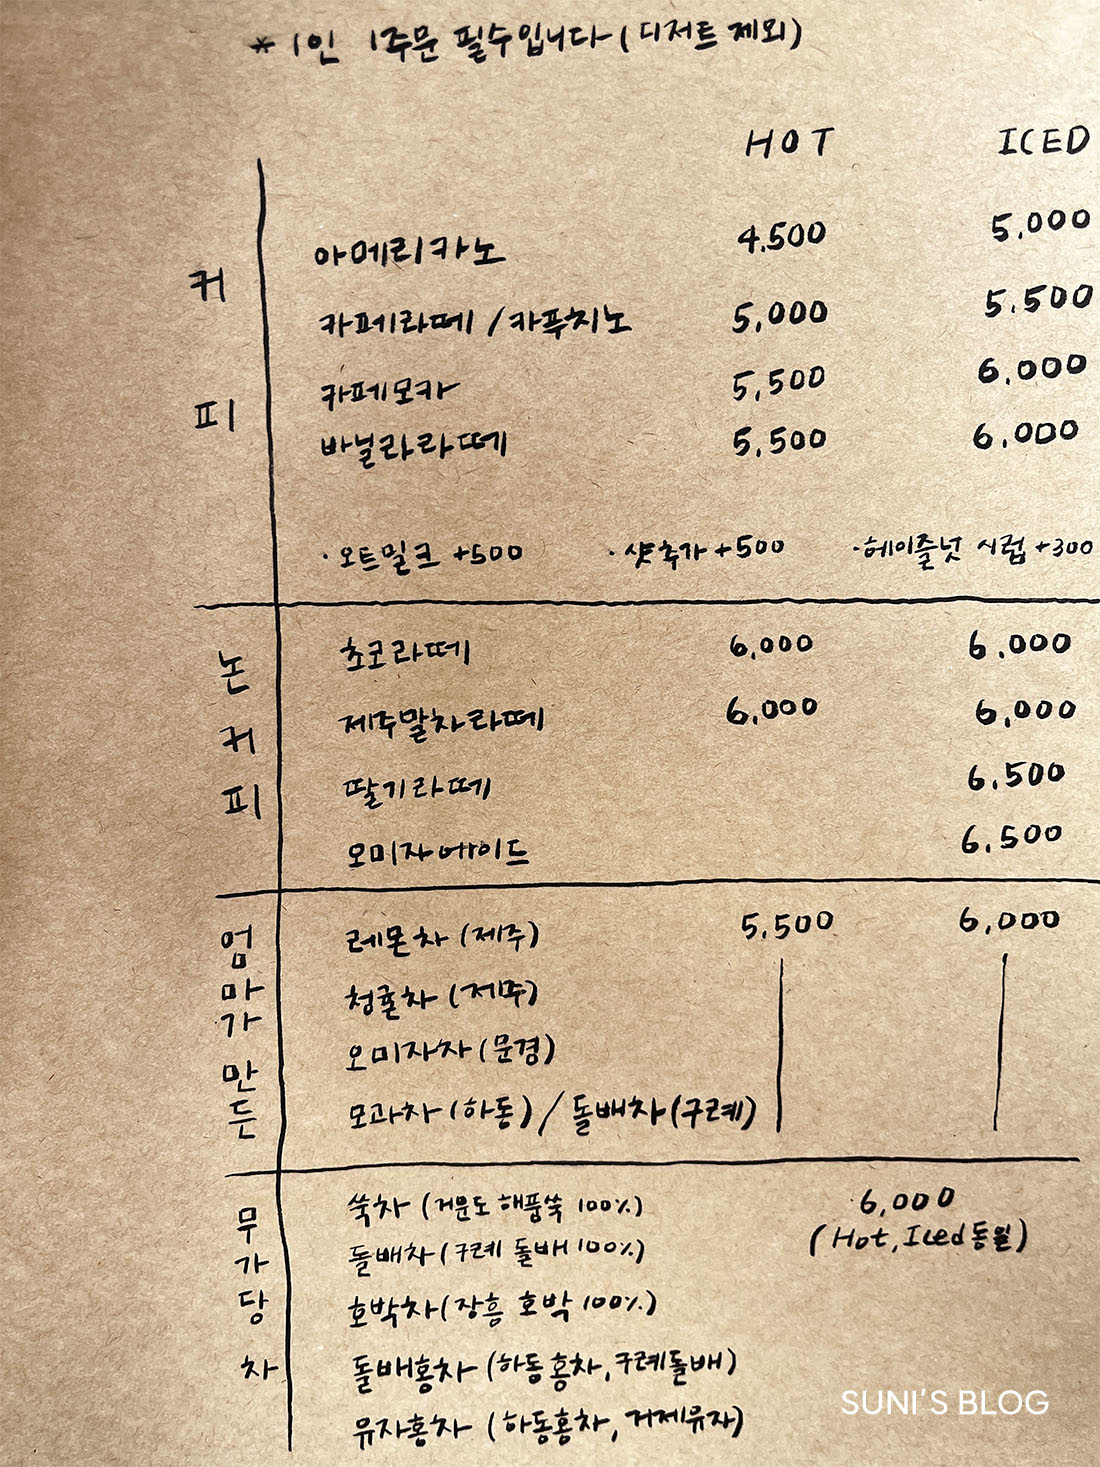 * 1인 1주문 필수입니다 (디저트 제외)
HOT ICED
커피
아메리카노 4.500 5.000
카페라떼 / 카푸치노 5,000 5.500
카페모카 5,500 6.000
바닐라라떼 5.500 6.000
·오트밀크 +500 ·샷추가 +500 ·헤이즐넛 시럽 +300
논커피
초코라떼 6,000 6.000
제주말차라떼 6,000 6,000
딸기라떼 6.500
오미자에이드 6.500
엄마가 만든
레몬차 (제주) 5.500 6,000
청귤차 (제주)
오미자차 (문경)
모과차 (하동) / 돌배차 (구례)
무가당차
쑥차 (거문도 해풍쑥 100%) 6,000
(Hot, Iced 동일)
돌배차 (구례 돌배 100%)
호박차 (장흥 호박 100%)
돌배홍차 (하동홍차, 구례돌배)
유자홍차 (하동홍차, 거제유자)
SUNI'S BLOG